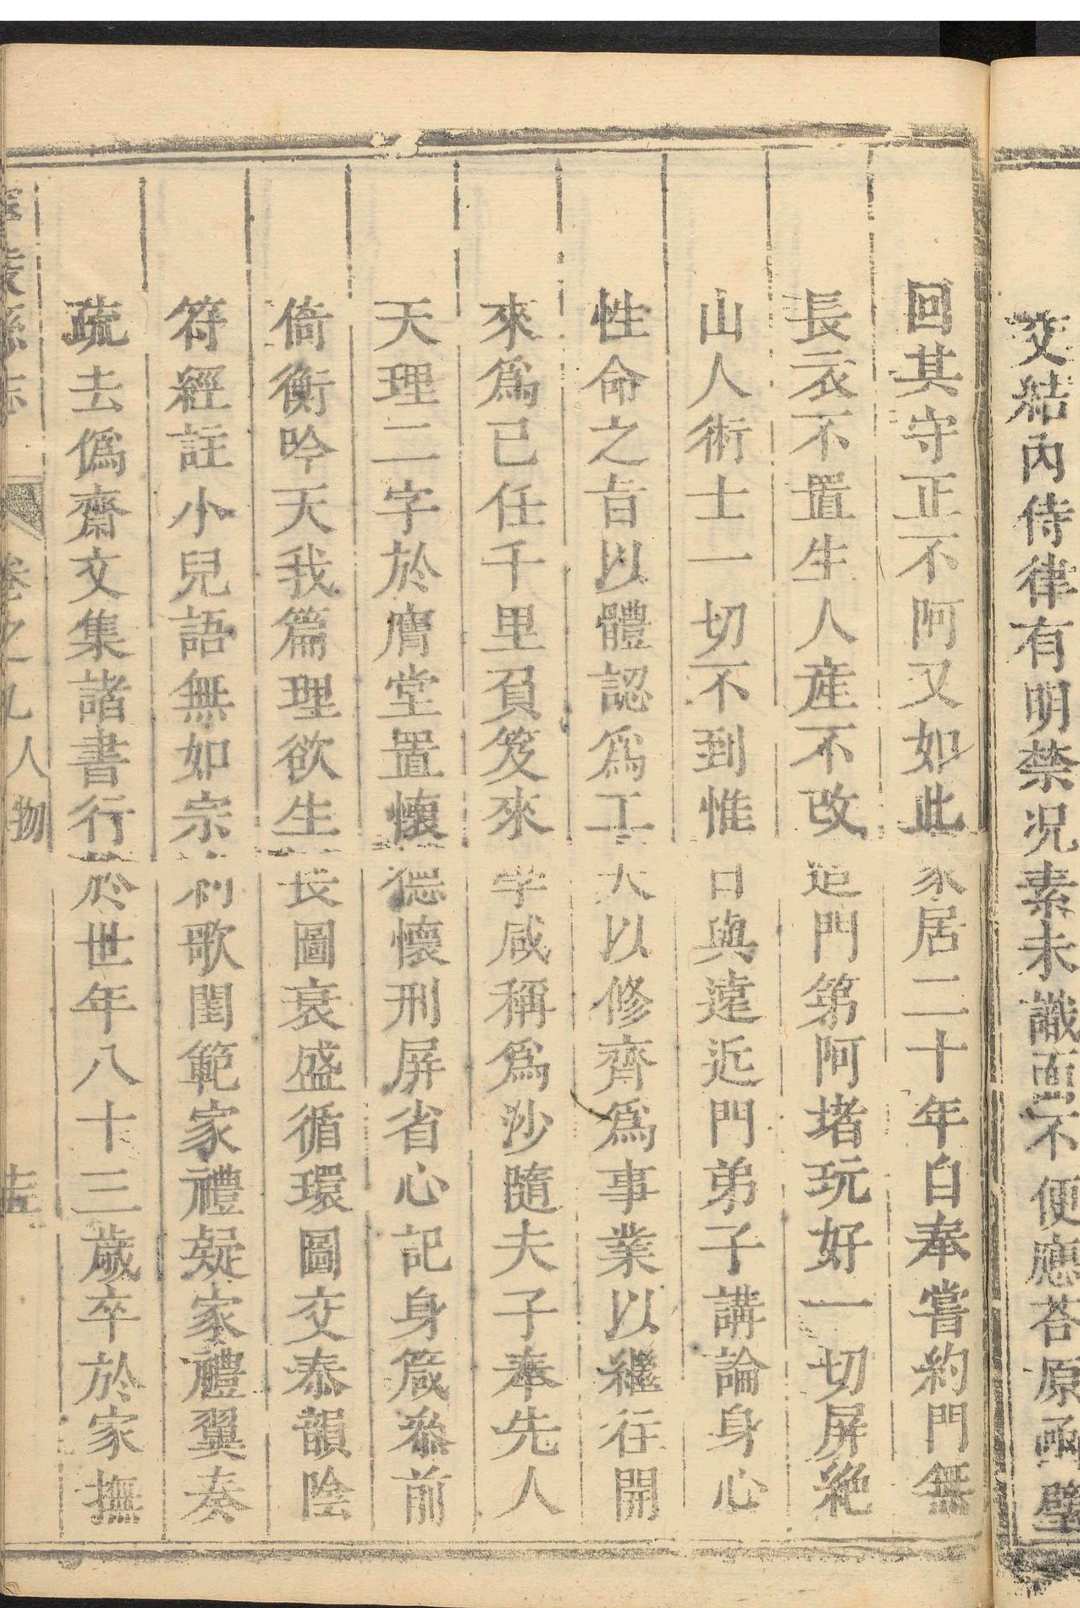 交結內侍律有明禁況素未識面不便應荅原函璧
回其守正不阿又如此家居二十年自奉嘗約門無
長衣不置生人產不改造門第阿堵玩好一切屏絶
山人術士一切不到惟日與遠近門弟子講論身心
性命之旨以體認爲工夫以修齊爲事業以繼往開
來爲已任千里負笈來學咸稱爲沙隨夫子奉先人
天理二字於膺堂置懷德懷刑屏省心記身箴叅前
倚衡吟天我篇理欲生長圖衰盛循環圖交泰韻陰
符經註小兒語無如宗約歌閨範家禮疑家禮翼奏
疏去僞齋文集諸書行於世年八十三歲卒於家撫
寧陵縣志 卷之九人物 十五